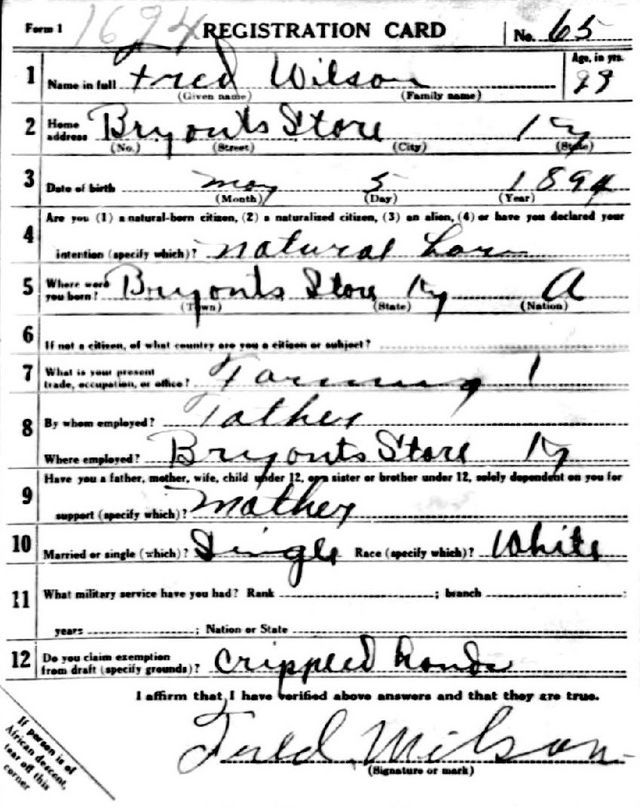 Form 1 1694 REGISTRATION CARD No. 65
1 Name in full Fred Wilson Age, in yrs. 23
(Given name) (Family name)
2 Home address Bryonts Store Ky
(No.) (Street) (City) (State)
3 Date of birth may 5 1894
(Month) (Day) (Year)
4 Are you (1) a natural-born citizen, (2) a naturalized citizen, (3) an alien, (4) or have you declared your
intention (specify which)? natural born
5 Where were you born? Bryonts Store Ky A
(Town) (State) (Nation)
6 If not a citizen, of what country are you a citizen or subject?
7 What is your present trade, occupation, or office? Farming 1
8 By whom employed? Father
Where employed? Bryonts Store Ky
9 Have you a father, mother, wife, child under 12, or a sister or brother under 12, solely dependent on you for
support (specify which)? Mother
10 Married or single (which)? Single Race (specify which)? White
11 What military service have you had? Rank ; branch
years ; Nation or State
12 Do you claim exemption from draft (specify grounds)? Crippled hands
I affirm that I have verified above answers and that they are true.
Fred Wilson
(Signature or mark)
If person is of
African descent,
tear off this
corner